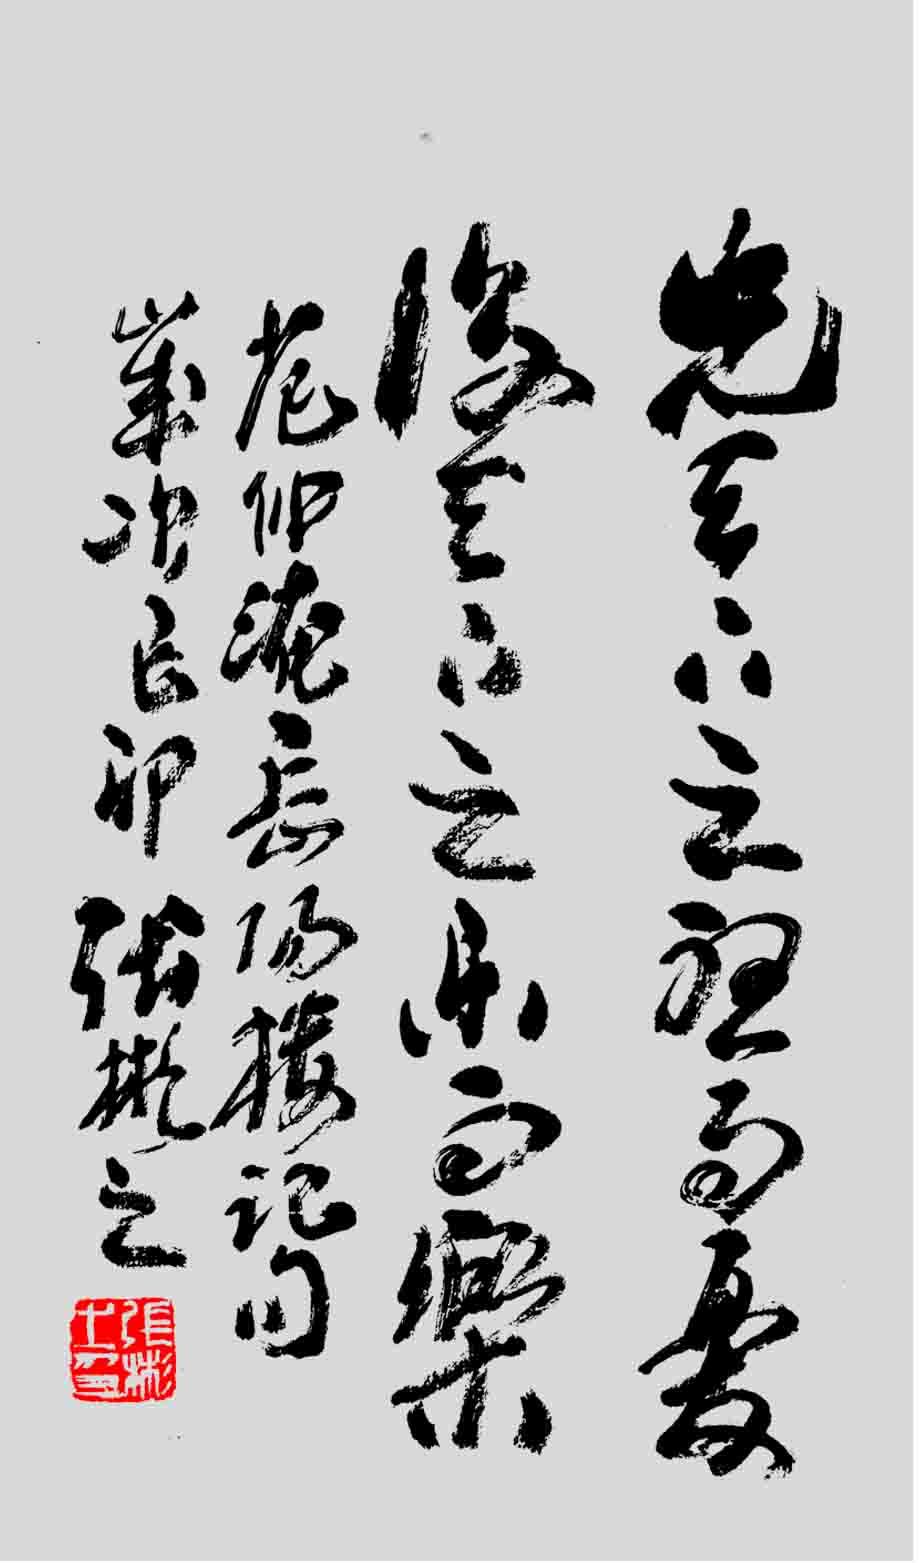 先天下之憂而憂
後天下之樂而樂
范仲淹岳陽樓記句
歲次己卯 張彬之
張彬之印